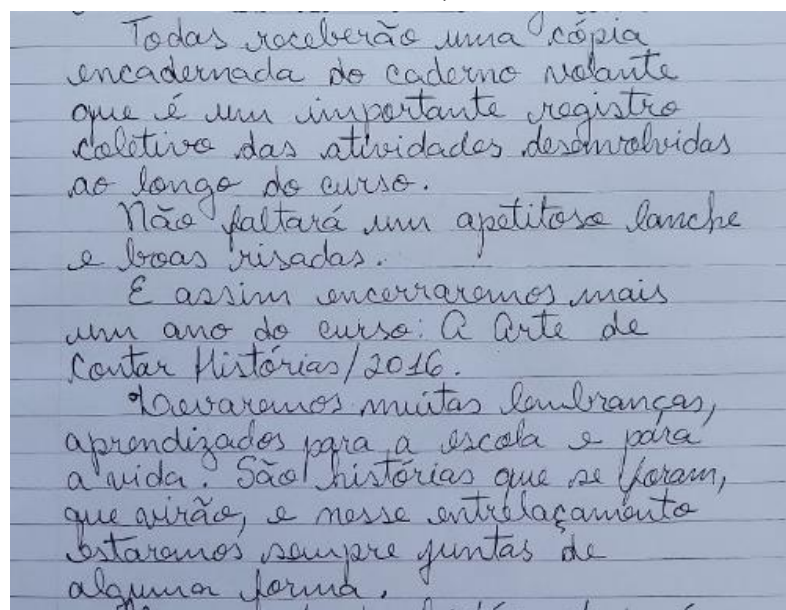 Todas receberão uma cópia
encadernada do caderno volante
que é um importante registro
coletivo das atividades desenvolvidas
ao longo do curso.
Não faltará um apetitoso lanche
e boas risadas.
E assim encerraremos mais
um ano do curso: A Arte de
Contar Histórias/2016.
Levaremos muitas lembranças,
aprendizados para a escola e para
a vida. São histórias que se foram,
que virão, e nesse entrelaçamento
estaremos sempre juntas de
alguma forma.